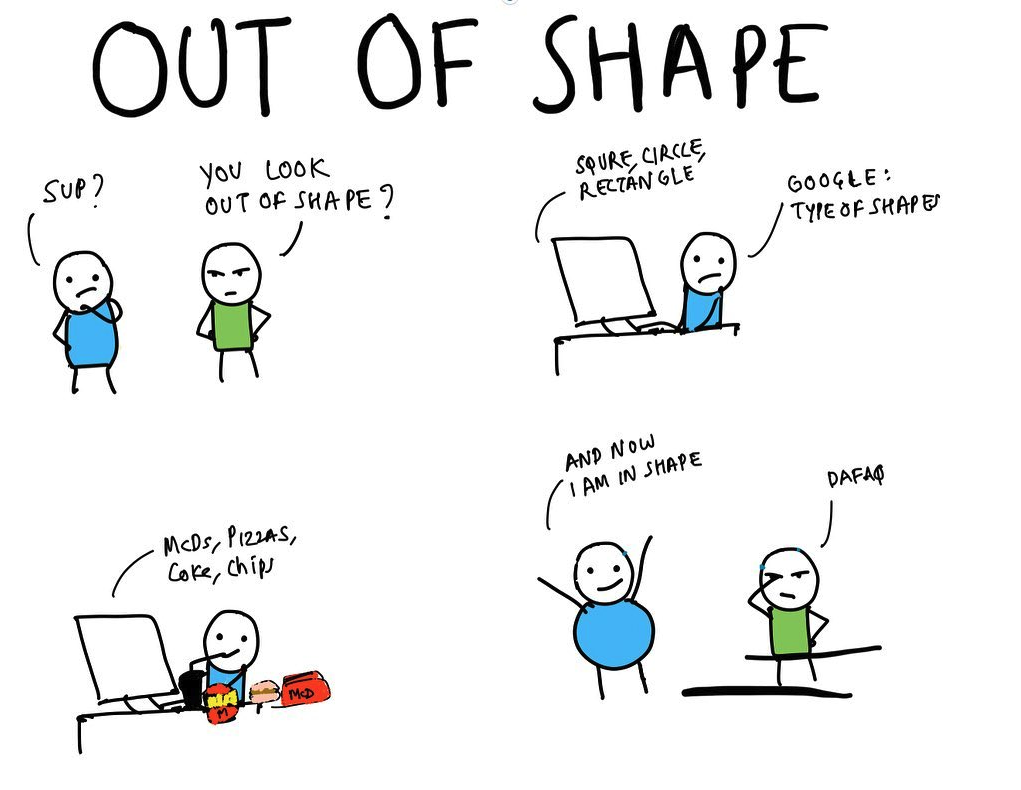 OUT OF SHAPE
SUP?
YOU LOOK
OUT OF SHAPE?
SQURE, CIRCLE,
RECTANGLE
GOOGLE:
TYPE OF SHAPES
McDs, PIZZAS,
Coke, Chips
M
McD
AND NOW
I AM IN SHAPE
DAFAQ